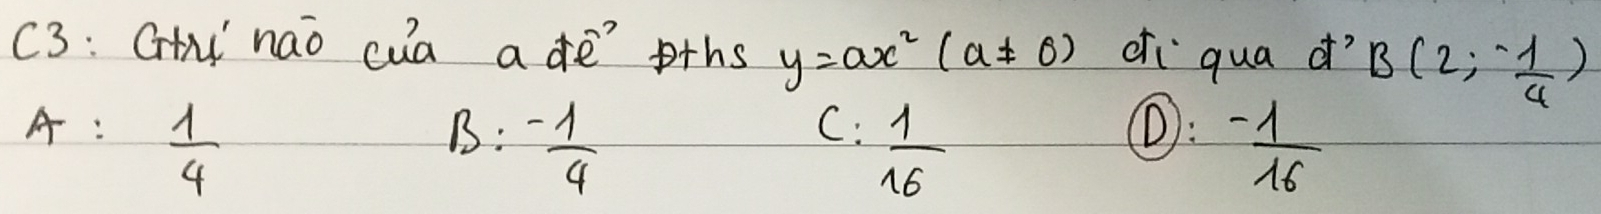 C3: Gtrị nào của a để đths y=ax² (a≠0) đi qua đ' B(2; -1/4)
A: 1/4 B: -1/4 C: 1/16 D: -1/16